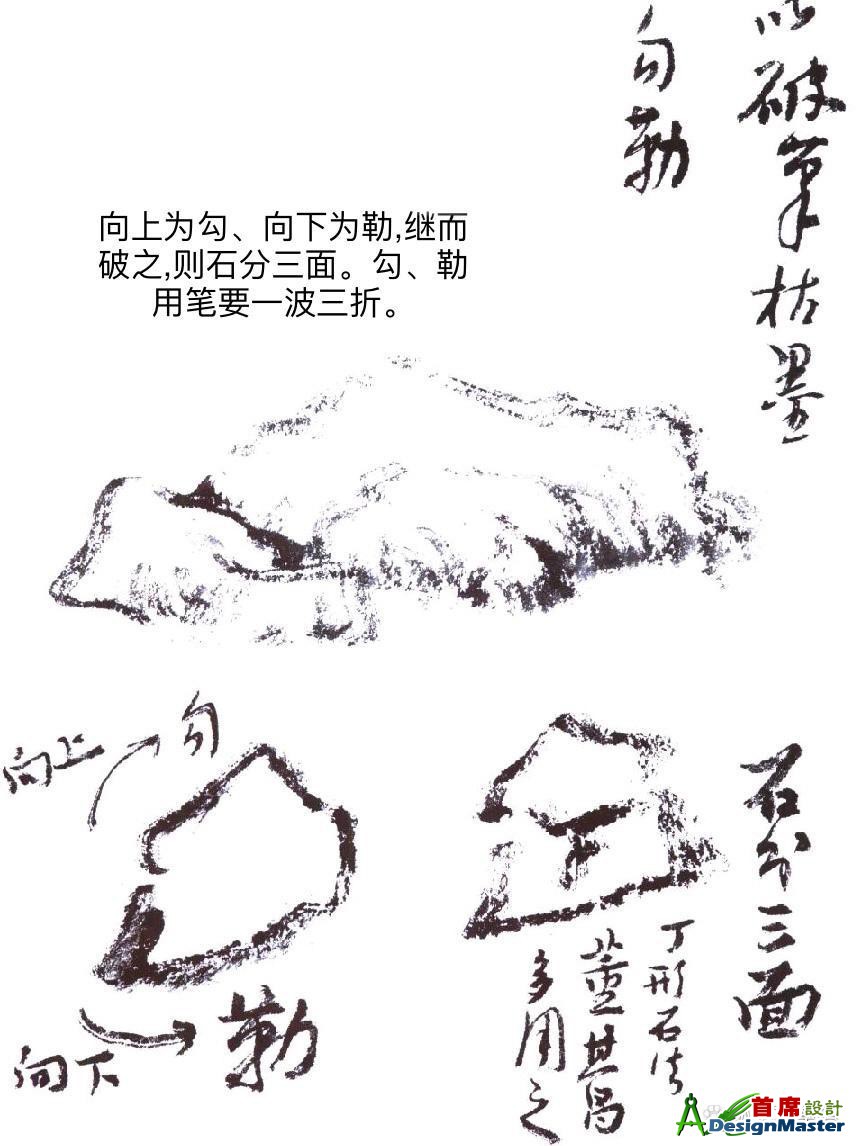 以破笔枯墨
勾勒
向上为勾、向下为勒,继而
破之,则石分三面。勾、勒
用笔要一波三折。
向上
勾
向下
勒
石分三面
丁形石法
董其昌
多用之
首席設計
ADesignMaster